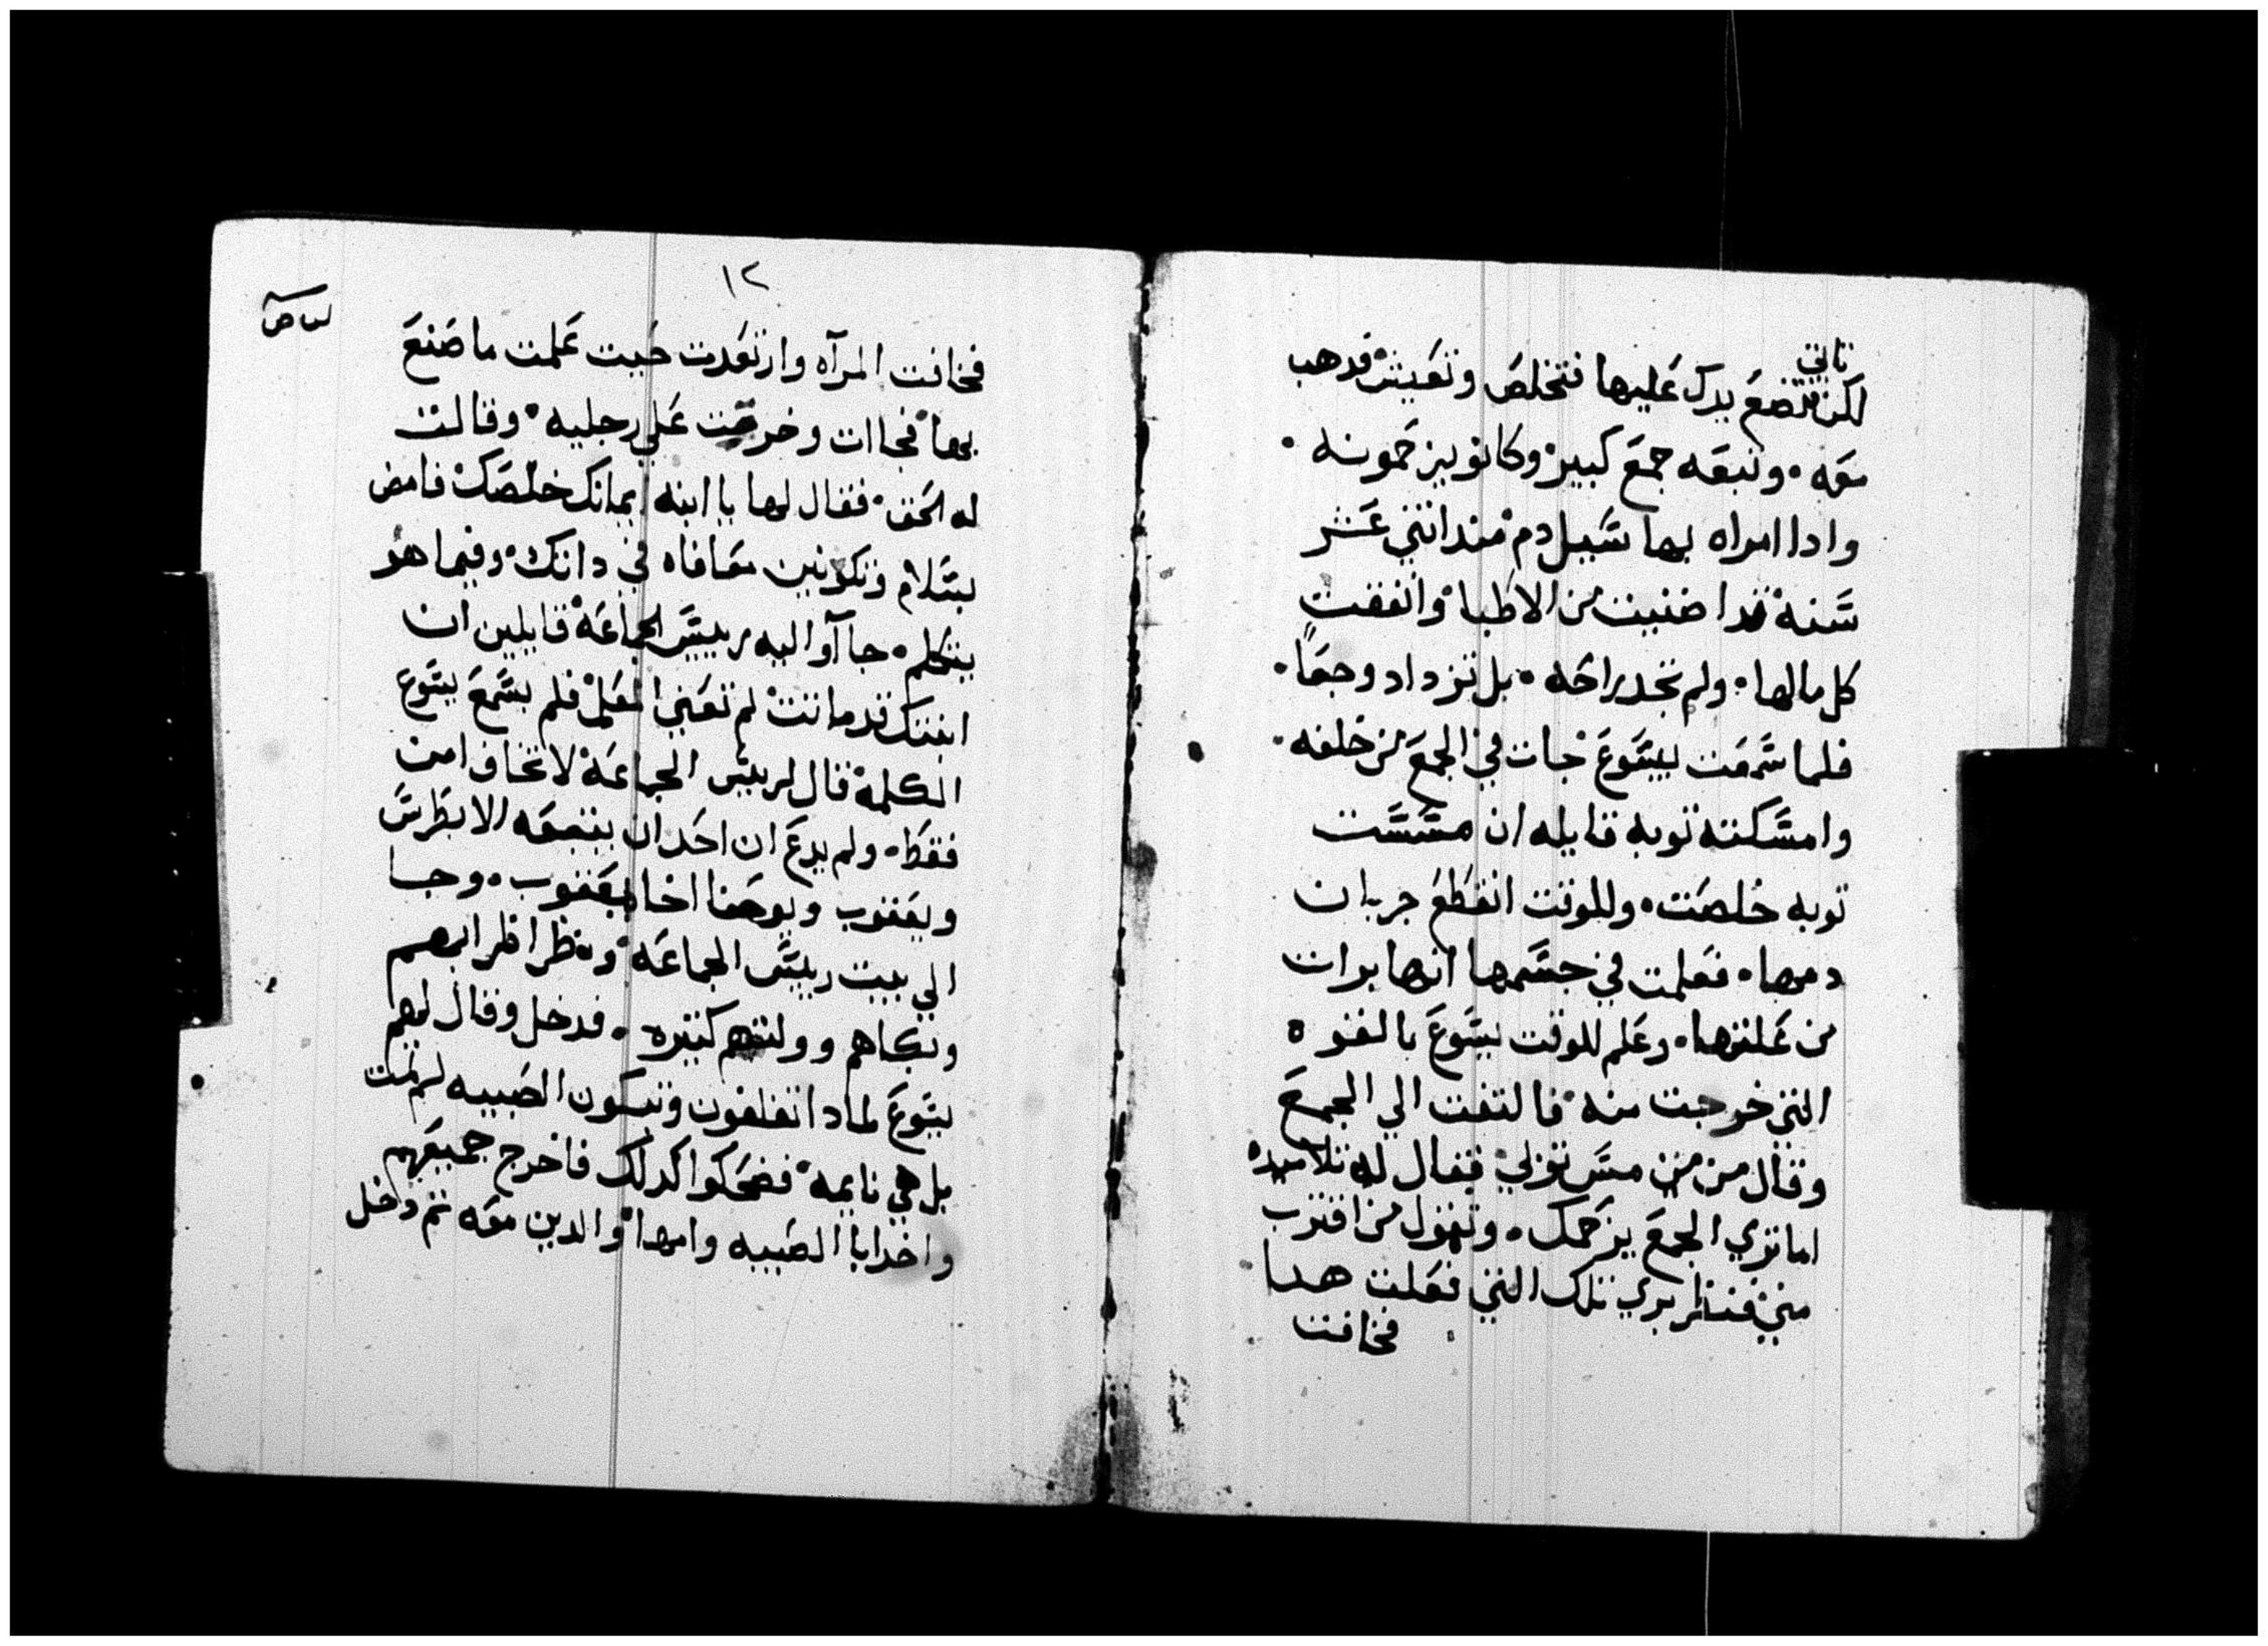 تاتي
لكن فتضع يدك عليها فتخلص وتعيش فدهب
معه ۰ وتبعه جمع كبير وكانو يزحمونه ۰
وادا امراه بها سيل دم مند اتني عشر
سنه قد اضنيت من الاطبا وانفقت
كل مالها ۰ ولم تجد راحه ۰ بل تزداد وجعًا ۰
فلما سمعت بيسوع جات في الجمع من خلفه ۰
وامسكت توبه قايله ان مسست
توبه خلصت ۰ وللوقت انقطع جريان
دمها ۰ فعلمت في جسمها انها برات
من علتها ۰ وعلم للوقت يسوع بالقوه
التي خرجت منه فالتفت الي الجمع
وقال من مس توبي فقال له تلاميده
اما تري الجمع يزحمك ۰ وتقول من اقترب
مني فنظر يري تلك التي فعلت هدا
فخافت
١٢
فخافت المرآه وارتعدت حيت علمت ما صنع
بها فجاات وخرت علي رجليه ۰ وقالت
له الحق ۰ فقال لها يا ابنه ايمانك خلصك فامض
بسلام وتكونين معافاه في داتك ۰ وفيما هو
يتكلم ۰ جاآوا اليه ريس الجماعه قايلين ان
ابنتك قد ماتت لم تعني المعلم فلم يسمع يسوع
الكلمه قال لرييس الجماعه لا تخاف امن
فقط ۰ ولم يدع ان احدان يتبعه الا بطرس
ويعقوب ويوحنا اخا يعقوب ۰ وجا
الي بيت رييس الجماعه ونظر اقلرابهم
وبكاهم وولتهم كتيره ۰ فدخل وقال لهم
يسوع لمادا تقلقون وتبكون الصبيه لم تمت
بل هي نايمه ۰ فضحكوا كدلك فاخرج جميعهم
واخد ابا الصبيه وامها والدين معه تم دخل